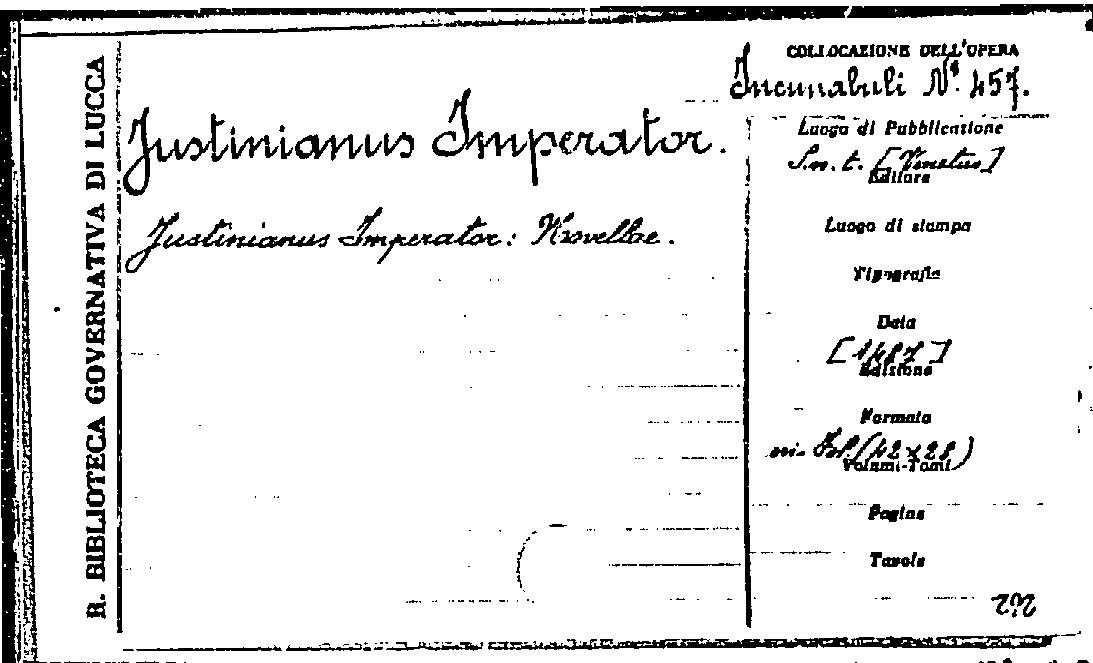 R. BIBLIOTECA GOVERNATIVA DI LUCCA
Justinianus Imperator.
Justinianus Imperator: Novellae.
COLLOCAZIONE DELL'OPERA
Incunabuli Nº 457.
Luogo di Pubblicazione
S. n. t. [Venetus]
Editore
Luogo di stampa
Tipografia
Data
[1487]
Edizione
Formato
in- Fol. (42 x 28)
Volumi-Tomi
Pagine
Tavole
262